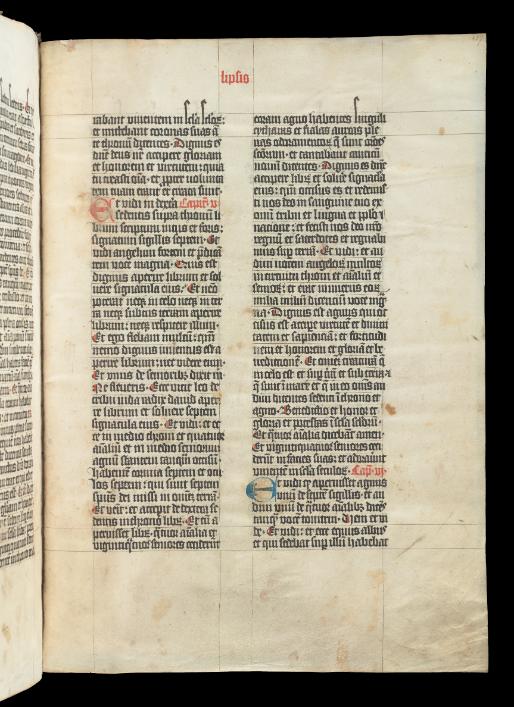 lipsis
rabant viuentem in sc̄la sc̄loꝝ:
et mittebant coronas suas añ
te thronū dicentes. Dignus es
dn̄e deus nr̄ accipere gloriam
et honorem et virtutem: quia
tu creasti oīa. et ꝓpter volūtatē
tuam erant et creata sunt.
Et vidi in dextra Capm̄ v
sedentis supra thronū li
brum scriptum intus et foris:
signatum sigillis septem. Et
vidi angelum fortem et p̄dicā
tem voce magna. Quis est
dignus aperire librum et sol
uere signacula eius. Et nemo
poterat neqꝫ in celo neqꝫ in ter
ra neqꝫ subtus terram aperire
librum: neqꝫ respicere illum.
Et ego flebam multum: qm̄
nemo dignus inuentus est a
perire librum: nec videre eum.
Et vnus de senioribꝯ dixit m̄.
Ne fleueris. Ecce vicit leo de
tribu iuda radix dauid aperi
re librum et soluere septem
signacula eius. Et vidi: et ec
ce in medio throni et quatuor
aīalium et in medio seniorum
agnū stantem tanqm̄ occisū:
habentē cornua septem et ocu
los septem: qui sunt septem
spūs dei missi in om̄eꝫ terrā.
Et venit: et accepit de dextera se
dentis in throno librū. Et cū a
peruisset librū. q̄tuor aīalia et
vigintiq̄tuor seniores ceciderūt
coram agno habentes singuli
cytharas et fialas aureas ple
nas odoramentoꝝ q̄ sunt or̄oēs
sc̄torum. et cantabant canticū
nouū dicentes. Dignus es dn̄e
accipere librū et soluere signacula
eius: qm̄ occisus es et redemi
sti nos deo in sanguine tuo ex
omī tribu et lingua et pplo et
natione: et fecisti nos deo nr̄o
regnū et sacerdotes et regnabi
mus sup terrā. Et vidi: et au
diui vocem angeloꝝ multoꝝ
in circuitu throni et aīalium et
senioꝝ. et erat numerus eoꝝ
milia miliū dicentiū voce mag
na. Dignus est agnus qui oc
cisus est accipere virtutē et diuini
tatem et sapientiā: et fortitudi
nem et honorem et gloriā et be
nedictionē. Et om̄eꝫ creaturā q̄
in celo est et sup terrā et sub terra
q̄ sunt in mari et q̄ in eo om̄s au
diui dicentes sedenti in throno et
agno. Benedictio et honor et
gloria et potestas in sc̄la sc̄loꝝ.
Et q̄tuor aīalia dicebāt amen.
Et vigintiquatuor seniores ceci
derūt in facies suas: et adorauerūt
viuentē in sc̄la sc̄loꝝ. Capm̄ vi
Et vidi qꝫ aperuisset agnus
vnū de septē sigillis: et au
diui vnū de q̄tuor aīalibꝯ dicēs
tanqꝫ vocē tonitrui. Veni et vi
de. Et vidi: et ecce equus albꝯ
et qui sedebat sup illū habebat